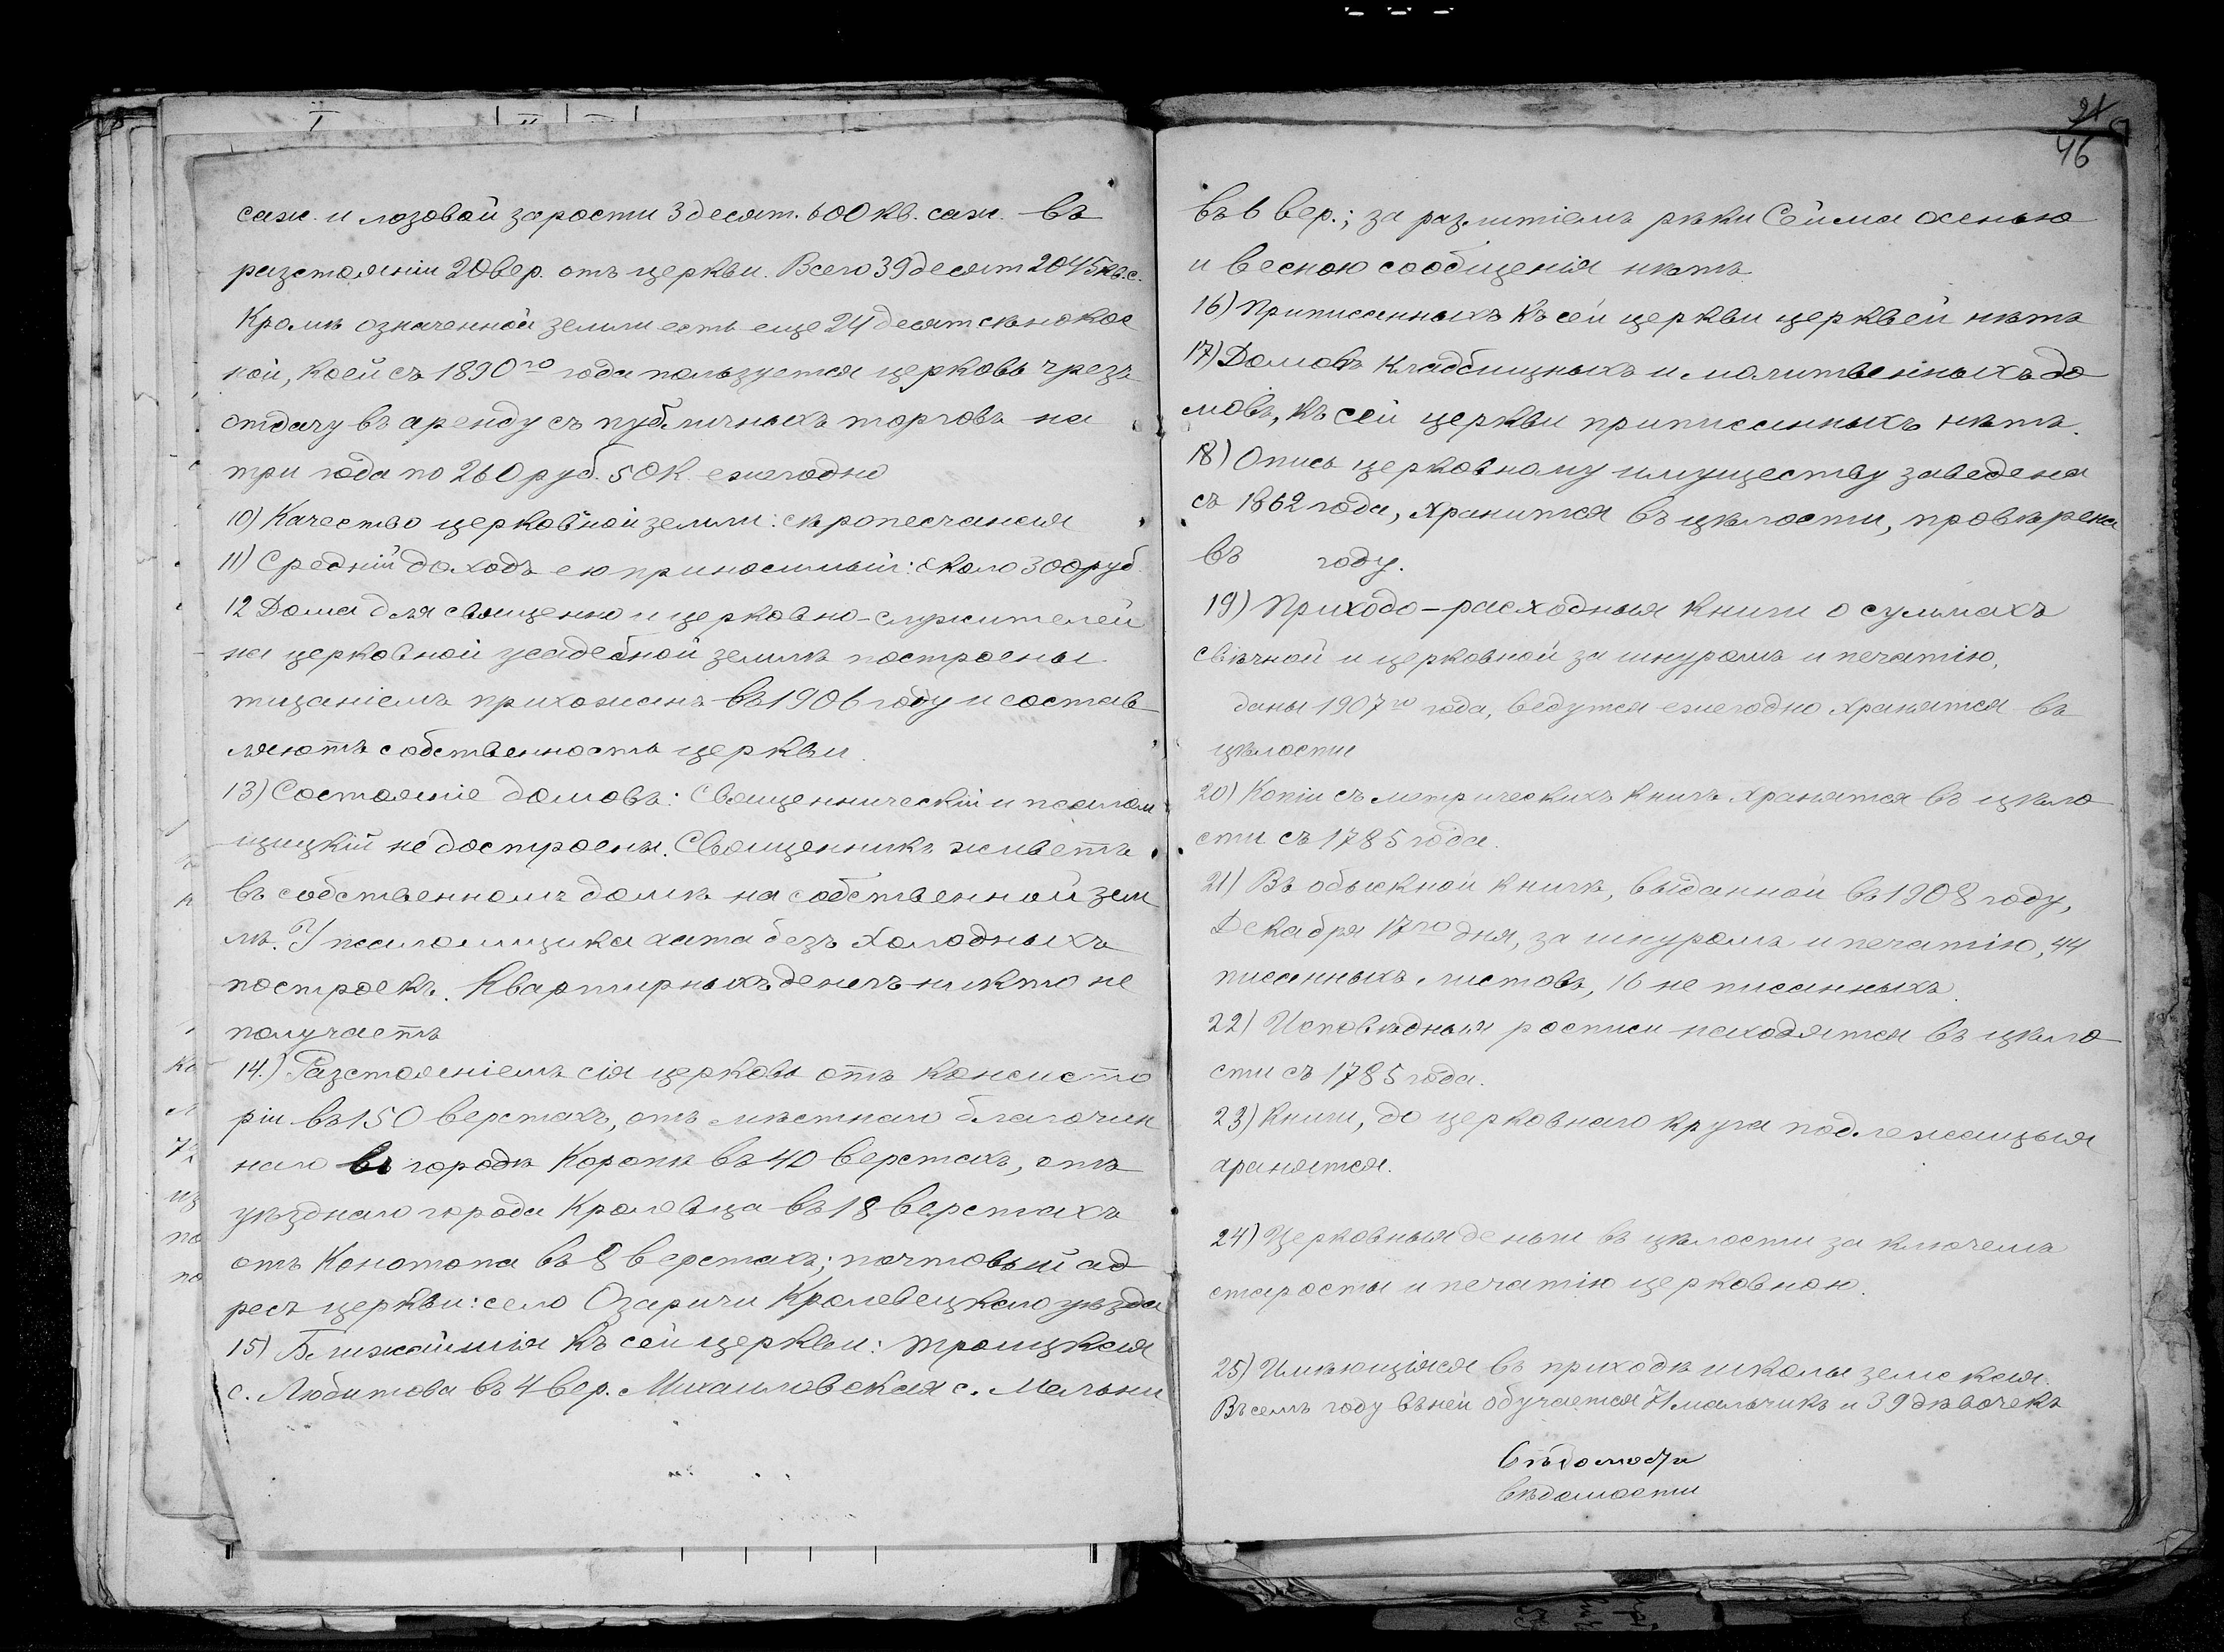 саж. и лозовой зарости 3 десят. 600 кв. саж. въ
разстояніи 20 вер. отъ церкви. Всего 39 десят 2045 кв. с.
Кромѣ означенной земли есть еще 24 десят сѣнокос
ной, коей съ 1890го года пользуется церковь чрезъ
отдачу въ аренду съ публичныхъ торговъ на
три года по 260 руб. 50 к. ежегодно
10) Качество церковной земли: сѣропесчаная
11) Средній доходъ ею приносимый: около 300 руб.
12 Дома для священно и церковно-служителей
на церковной усадебной землѣ построены
тщаніемъ прихожанъ въ 1906 году и состав
ляютъ собственность церкви.
13) Состояніе домовъ: Священническій и псалом
щицкій не достроены. Священникъ живетъ
въ собственномъ домѣ на собственной зем
лѣ. У псаломщика хата безъ холодныхъ
построекъ. Квартирныхъ денегъ никто не
получаетъ
14.) Разстояніемъ сія церковь отъ консисто
ріи въ 150 верстахъ, отъ мѣстнаго благочин
наго въ городѣ Коропѣ въ 40 верстахъ, отъ
уѣзднаго города Кролевца въ 18 верстахъ
отъ Конотопа въ 8 верстахъ; почтовый ад
ресъ церкви: село Озаричи Кролевецкаго уѣзда
15) Ближайшія къ сей церкви: Троицкая
с. Любитова въ 4 вер. Михаиловская с. Мельни
46
въ 6 вер.; за разлитіемъ рѣки Сейма осенью
и весною сообщенія нѣтъ
16) Приписанныхъ къ сей церкви церквей нѣтъ
17) Домовъ кладбищныхъ и молитвенныхъ до
мовъ, къ сей церкви приписанныхъ нѣтъ.
18) Опись церковному имуществу заведена
съ 1862 года, хранится въ цѣлости, провѣрена
въ году.
19) Приходо-расходныя книги о суммахъ
свѣчной и церковной за шнуромъ и печатію,
даны 1907го года, ведутся ежегодно хранятся въ
цѣлости
20) Копіи съ метрическихъ книгъ хранятся въ цѣло
сти съ 1785 года.
21) Въ обыскной книгѣ, выданной въ 1908 году,
Декабря 17го дня, за шнуромъ и печатію, 44
писанныхъ листовъ, 16 не писанныхъ.
22) Исповѣдныя росписи находятся въ цѣло
сти съ 1785 года.
23) Книги, до церковнаго круга подлежащыя
хранятся.
24) Церковныя деньги въ цѣлости за ключемъ
старосты и печатію церковною.
25) Имѣющіяся въ приходѣ школы земская.
Въ семъ году въ ней обучается 71 мальчикъ и 39 дѣвочекъ
вѣдомости
вѣдомости